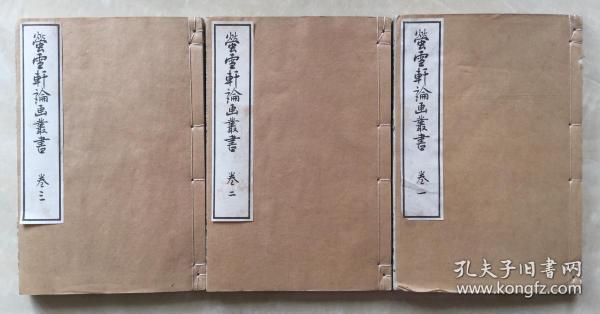 螢雪軒論画叢書 卷三
螢雪軒論画叢書 卷二
螢雪軒論画叢書 卷一
孔夫子旧書网
www.kongfz.com